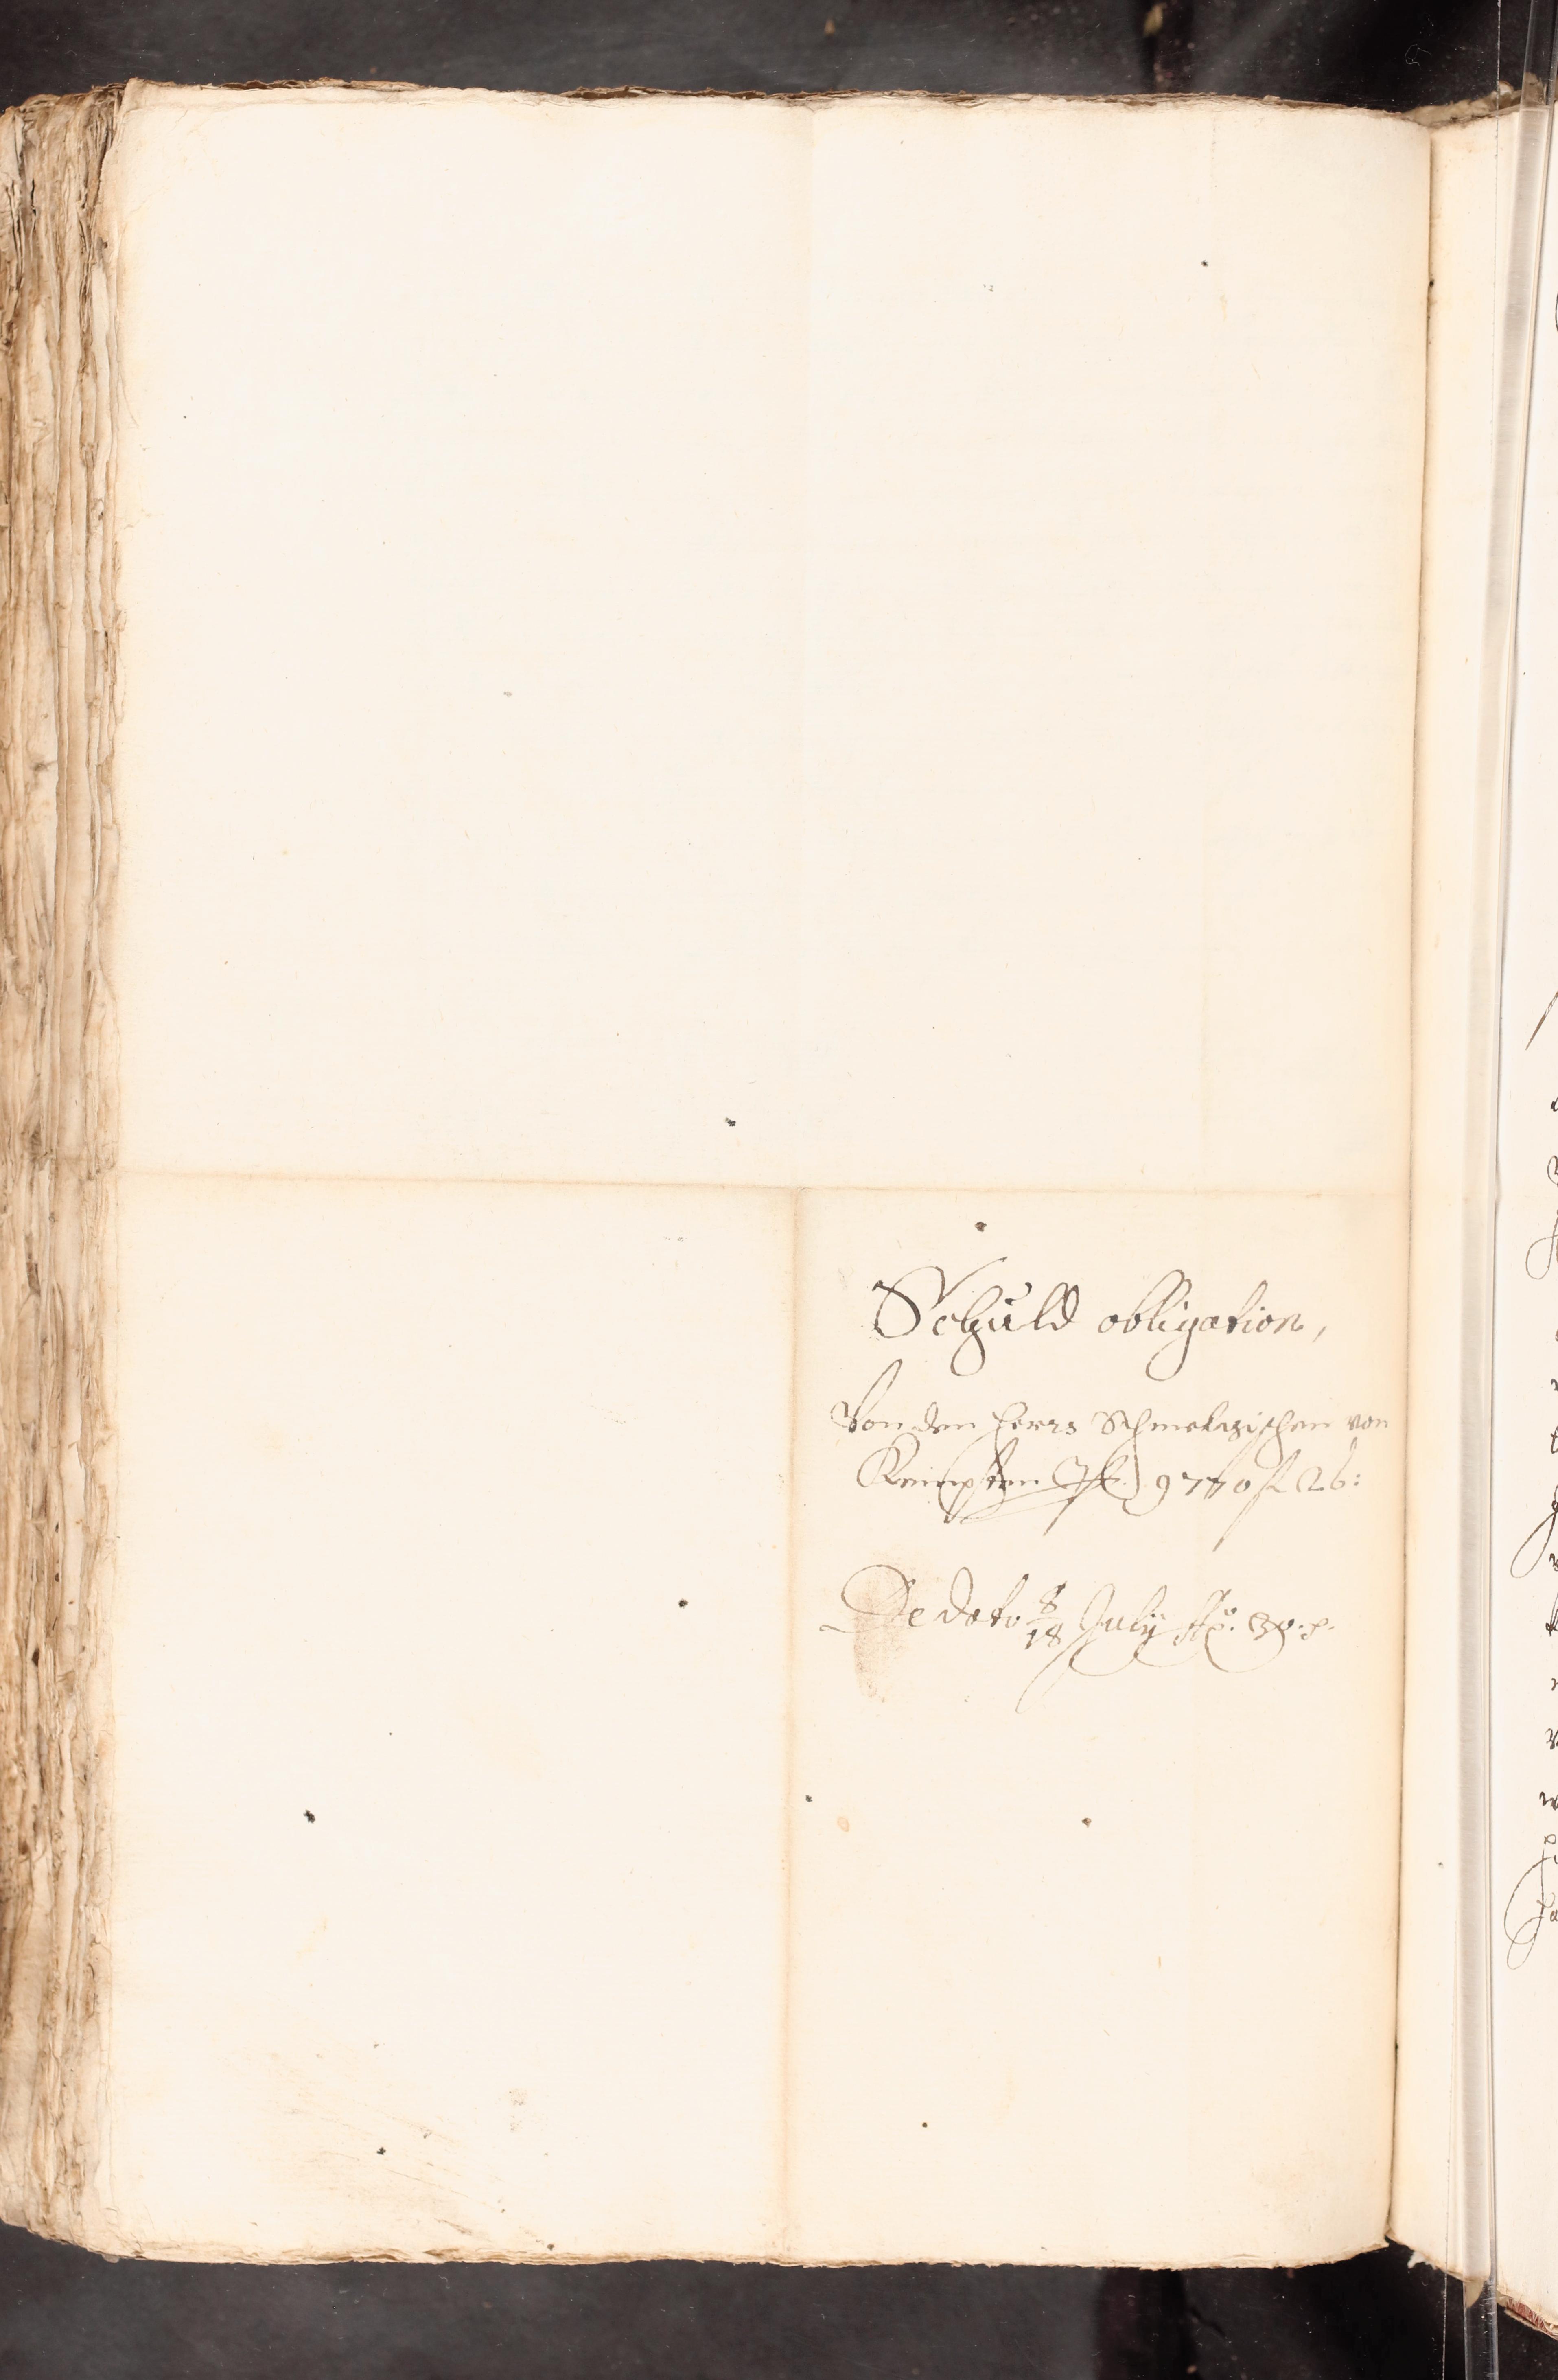 Schuld obligation,
Von den herrn Schmelzischen von
Kempten 9770 fl 26:
De dato 8/18 July